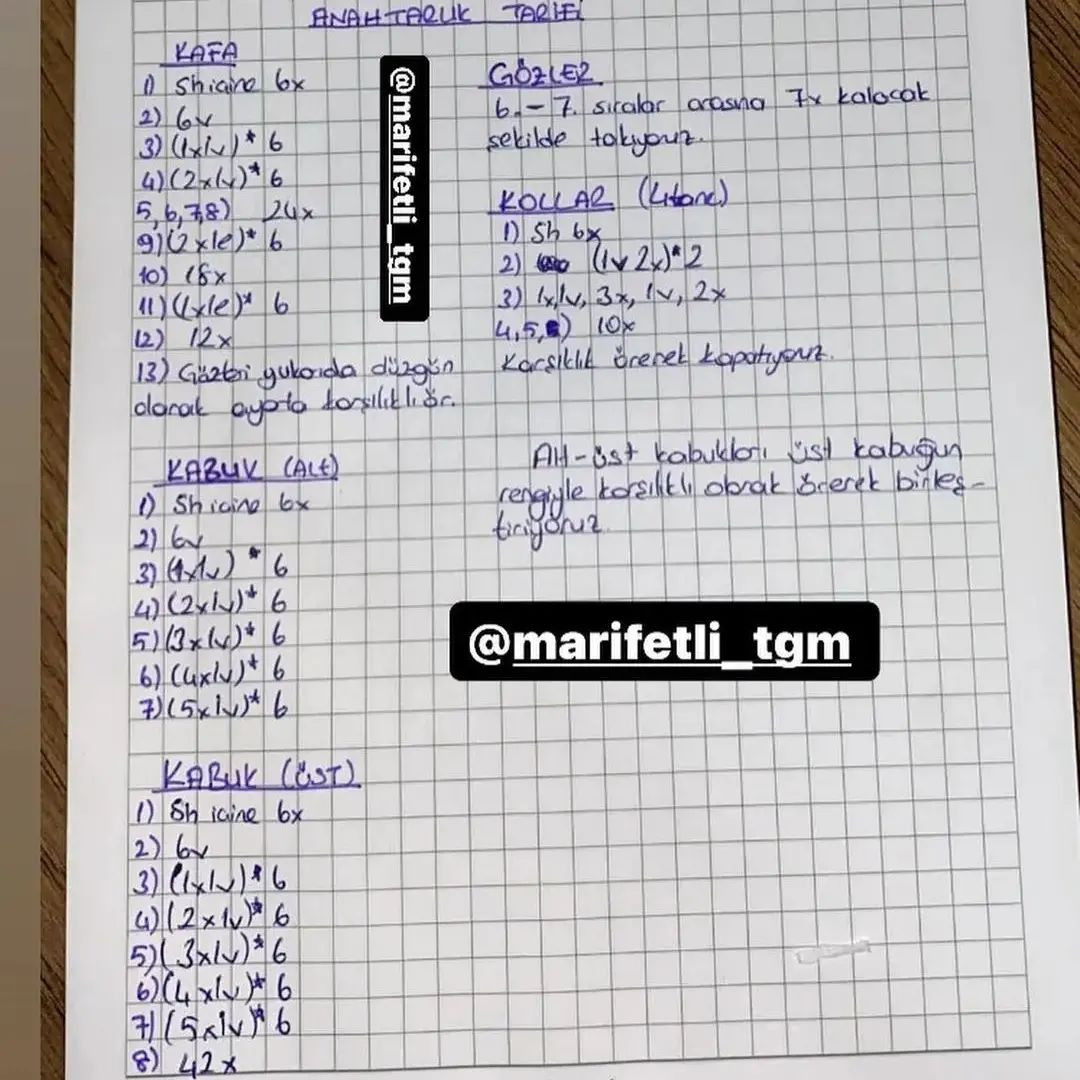 ANAHTARLIK TARİFİ
KAFA
1) Sh icine 6x
2) 6v
3) (1x1v)* 6
4) (2x1v)* 6
5,6,7,8) 24x
9) (2x1e)* 6
10) 18x
11) (1x1e)* 6
12) 12x
13) Gözleri yukarıda düzgün
olarak ayata karşılıklı ör.
KABUK (Alt)
1) Sh icine 6x
2) 6v
3) (1x1v) * 6
4) (2x1v)* 6
5) (3x1v)* 6
6) (4x1v)* 6
7) (5x1v)* 6
KABUK (ÜST)
1) Sh icine 6x
2) 6v
3) (1x1v)* 6
4) (2x1v)* 6
5) (3x1v)* 6
6) (4x1v)* 6
7) (5x1v)* 6
8) 42x
@marifetli_tgm
GÖZLER
6.-7. sıralar arasına 7x kalacak
şekilde takıyoruz.
KOLLAR (4 tane)
1) Sh 6x
2) (1v 2x)* 2
3) 1x,1v, 3x, 1v, 2x
4,5,) 10x
Karşıklık örerek kapatıyoruz.
Alt-üst kabukları üst kabuğun
rengiyle karşılıklı olarak örerek birleş-
tiriyoruz
@marifetli_tgm